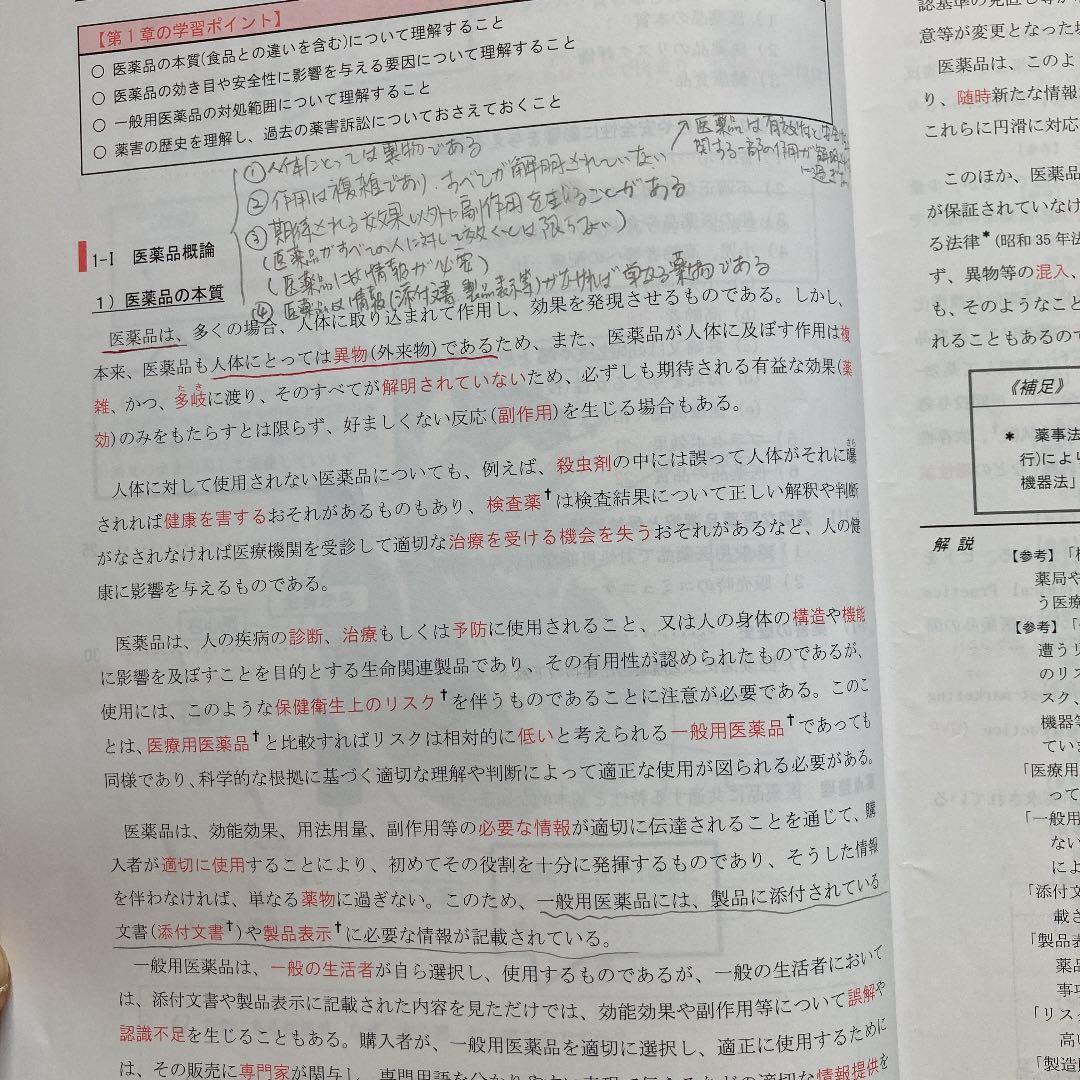 【第1章の学習ポイント】
○ 医薬品の本質(食品との違いを含む)について理解すること
○ 医薬品の効き目や安全性に影響を与える要因について理解すること
○ 一般用医薬品の対処範囲について理解すること
○ 薬害の歴史を理解し、過去の薬害訴訟についておさえておくこと
↗医薬品は有効性と安全性
関する一部の作用が解明
に過ぎ
①人体にとっては異物である
②作用は複雑であり、すべてが解明されていない
③期待される効果以外に副作用を生じることがある
(医薬品がすべての人に対して効くとは限らない)
(医薬品には情報が必要)
④医薬品は情報(添付文書 製品表示等)がなければ単なる薬物である
1-I 医薬品概論
1) 医薬品の本質
医薬品は、多くの場合、人体に取り込まれて作用し、効果を発現させるものである。しかし、
本来、医薬品も人体にとっては異物(外来物)であるため、また、医薬品が人体に及ぼす作用は複
たき
雑、かつ、多岐に渡り、そのすべてが解明されていないため、必ずしも期待される有益な効果(薬
効)のみをもたらすとは限らず、好ましくない反応(副作用)を生じる場合もある。
さら
人体に対して使用されない医薬品についても、例えば、殺虫剤の中には誤って人体がそれに曝
されれば健康を害するおそれがあるものもあり、検査薬†は検査結果について正しい解釈や判断
がなされなければ医療機関を受診して適切な治療を受ける機会を失うおそれがあるなど、人の健
康に影響を与えるものである。
医薬品は、人の疾病の診断、治療もしくは予防に使用されること、又は人の身体の構造や機能
に影響を及ぼすことを目的とする生命関連製品であり、その有用性が認められたものであるが、
使用には、このような保健衛生上のリスク†を伴うものであることに注意が必要である。このこ
とは、医療用医薬品†と比較すればリスクは相対的に低いと考えられる一般用医薬品†であっても
同様であり、科学的な根拠に基づく適切な理解や判断によって適正な使用が図られる必要がある。
医薬品は、効能効果、用法用量、副作用等の必要な情報が適切に伝達されることを通じて、購
入者が適切に使用することにより、初めてその役割を十分に発揮するものであり、そうした情報
を伴わなければ、単なる薬物に過ぎない。このため、一般用医薬品には、製品に添付されている
文書(添付文書†)や製品表示†に必要な情報が記載されている。
一般用医薬品は、一般の生活者が自ら選択し、使用するものであるが、一般の生活者において
は、添付文書や製品表示に記載された内容を見ただけでは、効能効果や副作用等について誤解や
認識不足を生じることもある。購入者が、一般用医薬品を適切に選択し、適正に使用するために
は、その販売に専門家が関与し、専門用語を分かりやすい表現で伝えるなどの適切な情報提供を
認基準の見直し等が
意等が変更となった場
医薬品は、このよ
り、随時新たな情報
これらに円滑に対応
このほか、医薬品
が保証されていなけ
る法律*(昭和35年法
ず、異物等の混入、
も、そのようなこと
れることもあるので
《補足》
* 薬事法
行)により
機器法」
解 説
【参考】「
薬局や
う医療
【参考】「
遭うリ
のリス
スク、
機器等
てい
「医療用
って
「一般用
ない
によ
「添付文
載さ
「製品表
薬品
事項
「リス
高い
「製造